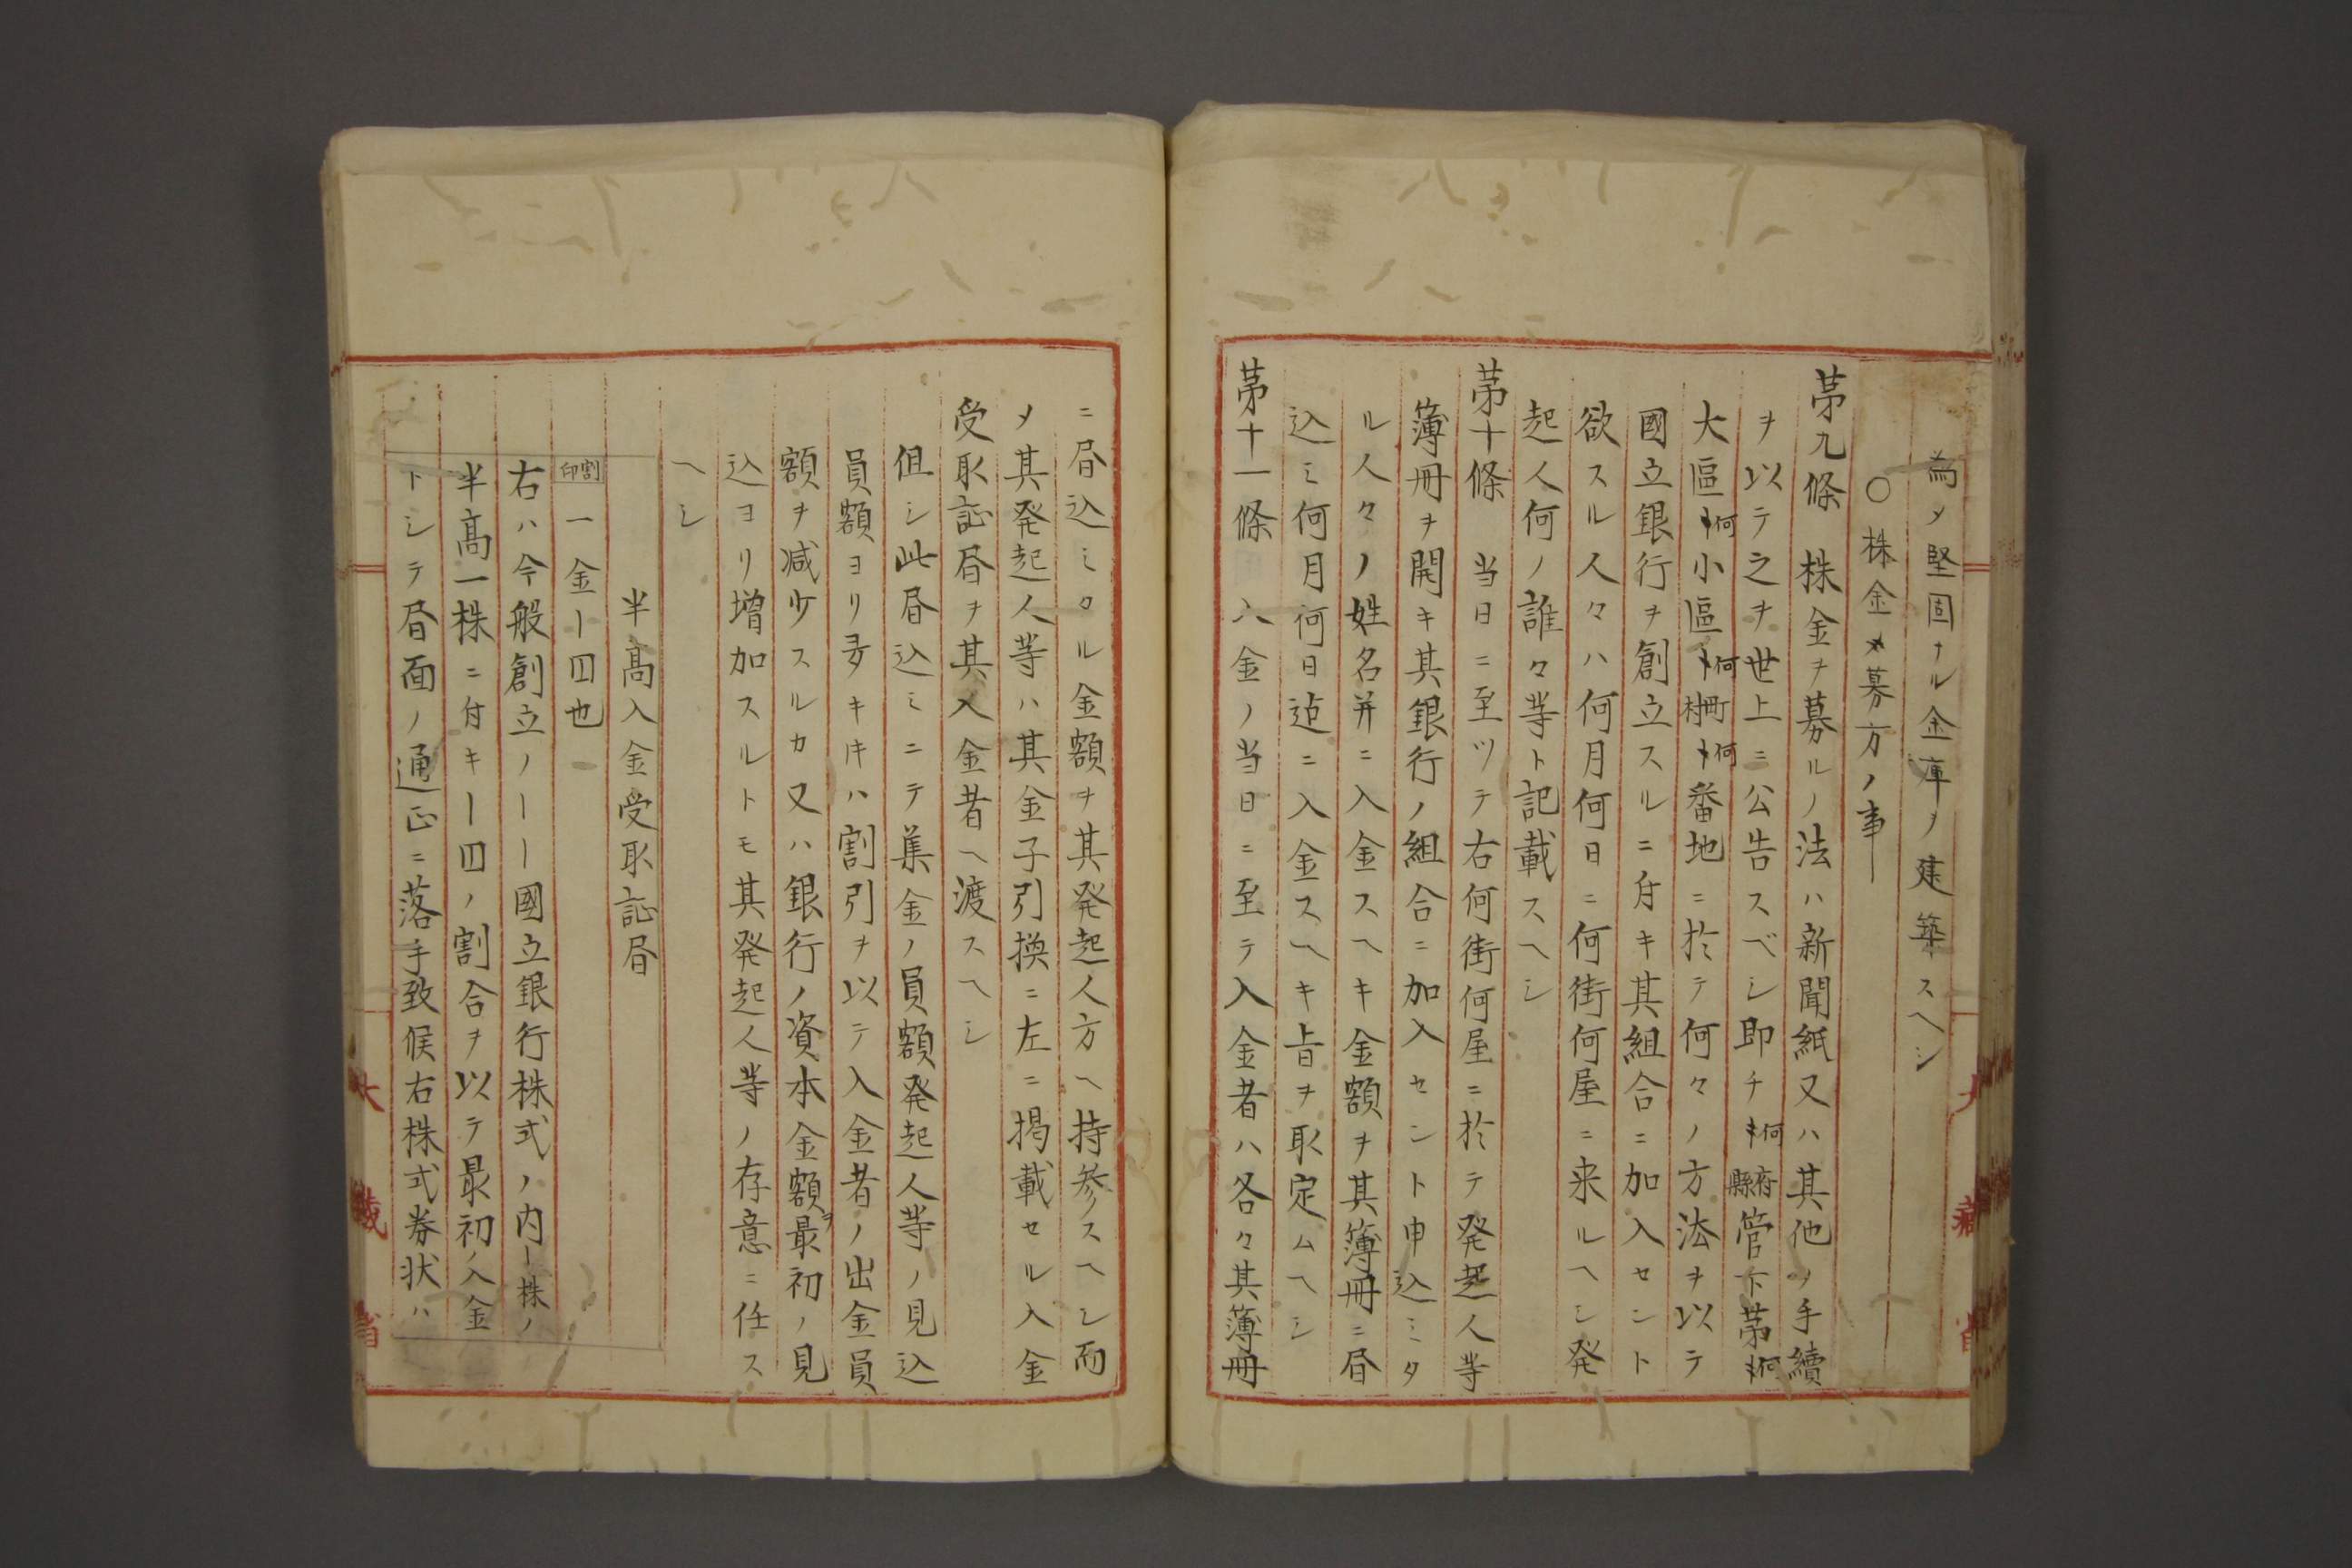 為メ堅固ナル金庫ヲ建築スヘシ
○株金ノ募方ノ事
苐九條　株金ヲ募ルノ法ハ新聞紙又ハ其他ノ手續
ヲ以テ之ヲ世上ニ公告スベシ即チ何々府縣管下苐何々
大區何々小區何々町村何々番地ニ於テ何々ノ方法ヲ以テ
國立銀行ヲ創立スルニ付キ其組合ニ加入セント
欲スル人々ハ何月何日ニ何街何屋ニ来ルヘシ発
起人何ノ誰々等ト記載スヘシ
苐十條　当日ニ至ツテ右何街何屋ニ於テ発起人等
簿冊ヲ開キ其銀行ノ組合ニ加入セント申込ミタ
ル人々ノ姓名并ニ入金スヘキ金額ヲ其簿冊ニ昏
込ミ何月何日迠ニ入金スヘキ旨ヲ取定ムヘシ
苐十一條　入金ノ当日ニ至テ入金者ハ各々其簿冊
ニ昏込ミタル金額ヲ其発起人方ヘ持参スヘシ而
メ其発起人等ハ其金子引換ニ左ニ掲載セル入金
受取証昏ヲ其入金者ヘ渡スヘシ
但シ此昏込ミニテ集金ノ員額発起人等ノ見込
員額ヨリ多キキハ割引ヲ以テ入金者ノ出金員
額ヲ减少スルカ又ハ銀行ノ資本金額ヲ最初ノ見
込ヨリ増加スルトモ其発起人等ノ存意ニ任ス
ヘシ
半髙入金受取証昏
割印　一金ー四也
右ハ今般創立ノーー國立銀行株式ノ内ー株ノ
半髙一株ニ付キー四ノ割合ヲ以テ最初ノ入金
トシテ昏面ノ通正ニ落手致候右株式券状ハ
大藏省
大藏省